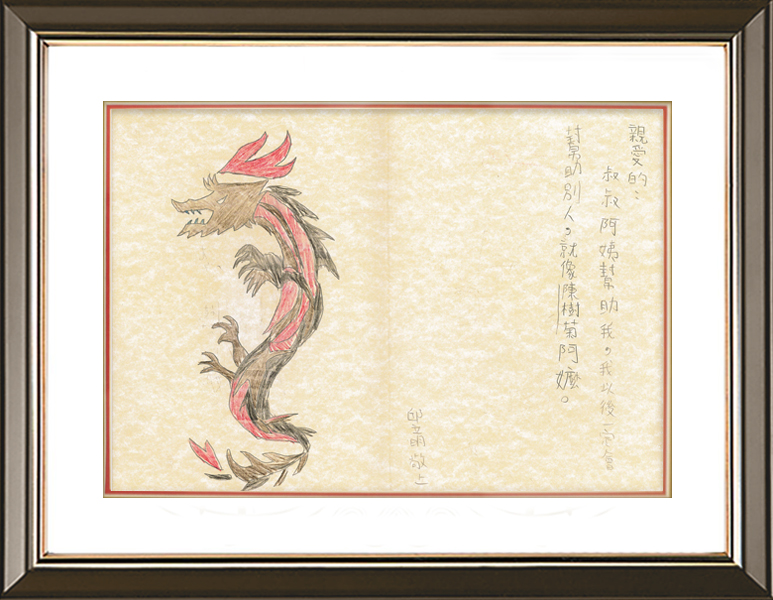 親愛的：
叔叔阿姨幫助我，我以後一定會
幫助別人，就像陳樹菊阿嬤。
邱 敬上